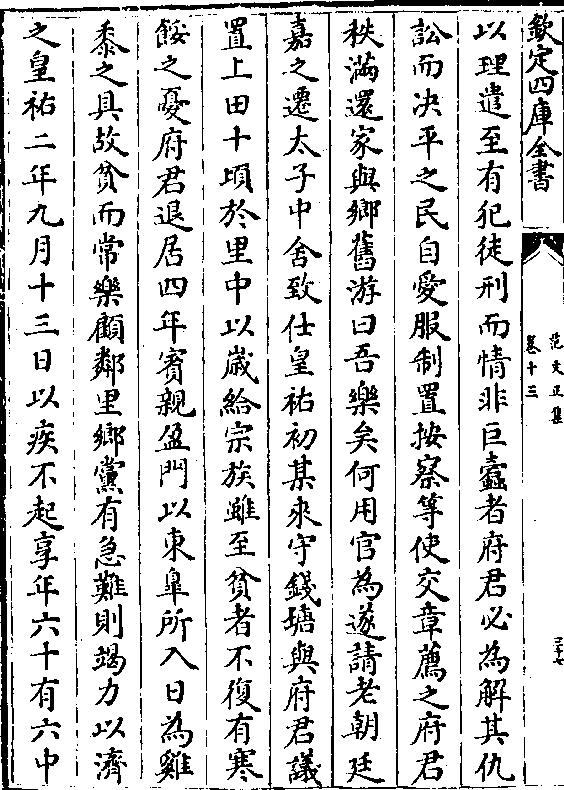 欽定四庫全書
范文正集
卷十三
二十七
以理遣至有犯徒刑而情非巨蠹者府君必為解其仇
訟而決平之民自愛服制置按察等使交章薦之府君
秩滿還家與鄉舊游曰吾樂矣何用官為遂請老朝廷
嘉之遷太子中舍致仕皇祐初某來守錢塘與府君議
置上田十頃於里中以歲給宗族雖至貧者不復有寒
餒之憂府君退居四年賓親盈門以東臯所入日為雞
黍之具故貧而常樂顧鄰里鄉黨有急難則竭力以濟
之皇祐二年九月十三日以疾不起享年六十有六中